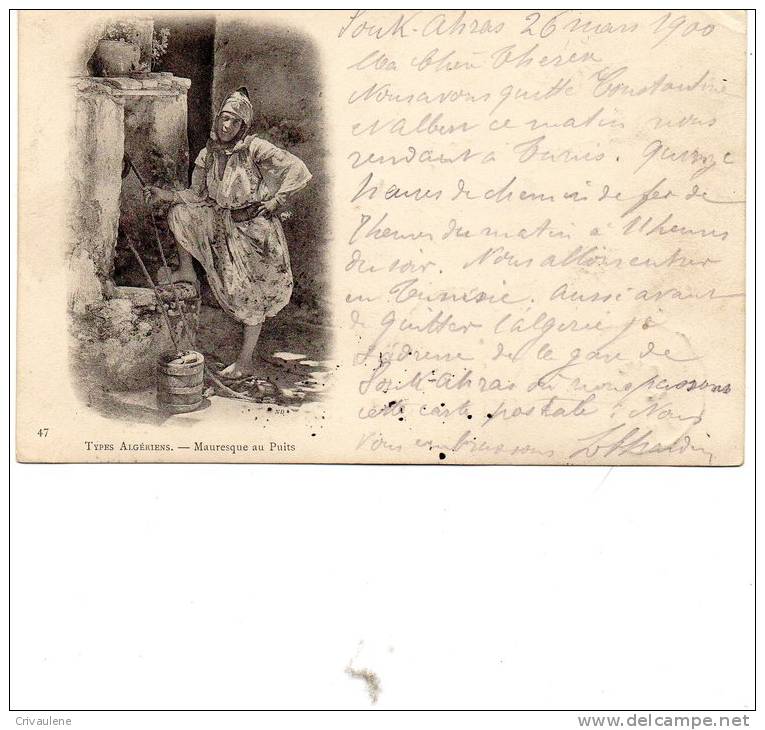 Souk-Ahras 26 mars 1900
Ma Chère Thérèse
Nous avons quitté Constantine
et Albert ce matin nous
rendant à Tunis. Quinze
heures de chemin de fer de
7 heures du matin à 11 heures
du soir. Nous allons entrer
en Tunisie. Aussi avant
de quitter l'algérie je
t'adresse de la gare de
Souk-Ahras où nous passons
cette carte postale. Nous
vous embrassons
47
TYPES ALGÉRIENS. — Mauresque au Puits
ND
Crivaulene
www.delcampe.net